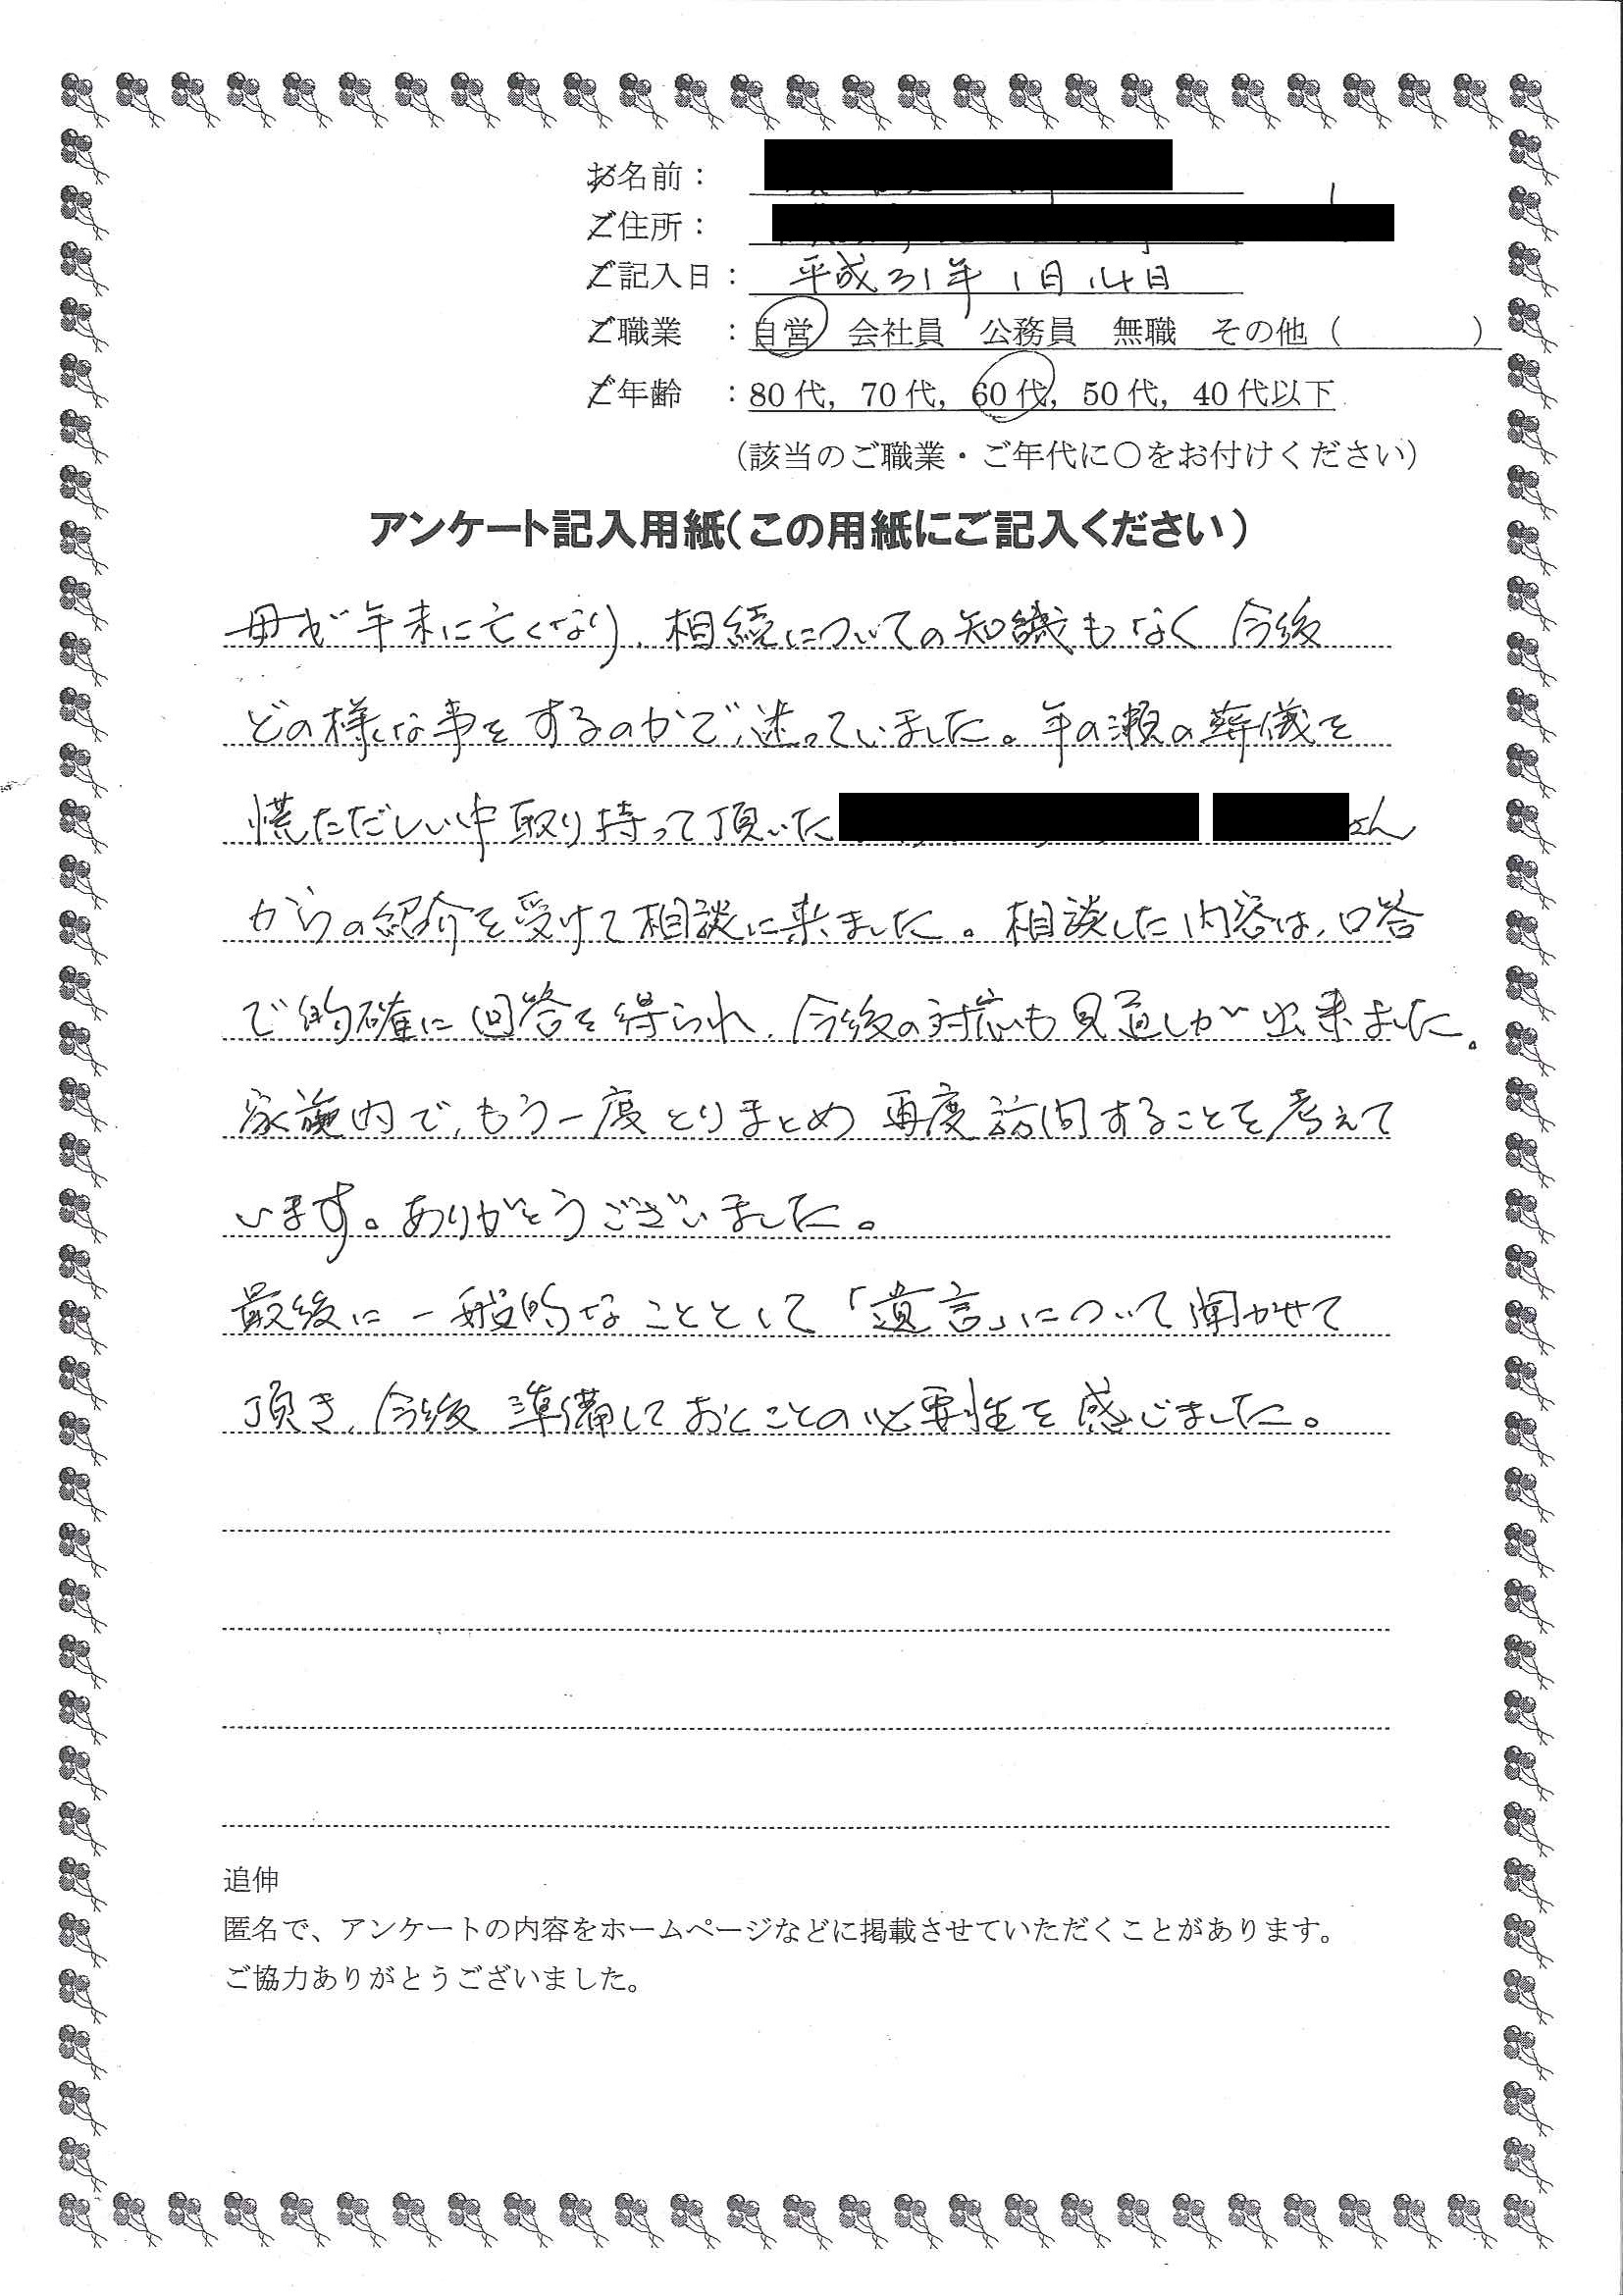 お名前：
ご住所：
ご記入日： 平成31年1月14日
ご職業 ：自営 会社員 公務員 無職 その他（ ）
ご年齢 ：80代，70代，60代，50代，40代以下
（該当のご職業・ご年代に〇をお付けください）
アンケート記入用紙（この用紙にご記入ください）
母が年末に亡くなり、相続についての知識もなく今後
どの様な事をするのかで、迷っていました。年の瀬の葬儀を
慌ただしい中取り持って頂いた さん
からの紹介を受けて相談に来ました。相談した内容は、口答
で的確に回答を得られ、今後の対応も見通しが出来ました。
家族内で、もう一度とりまとめ再度訪問することを考えて
います。ありがとうございました。
最後に一般的なこととして「遺言」について聞かせて
頂き、今後準備しておくことの必要性を感じました。
追伸
匿名で、アンケートの内容をホームページなどに掲載させていただくことがあります。
ご協力ありがとうございました。